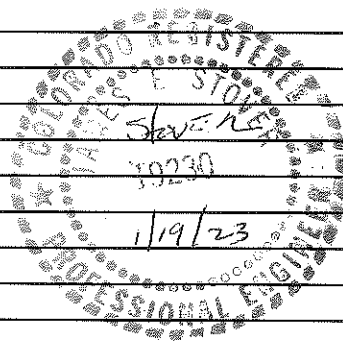 COLORADO REGISTERED
JAMES E STOVER
19230
1/19/23
PROFESSIONAL ENGINEER